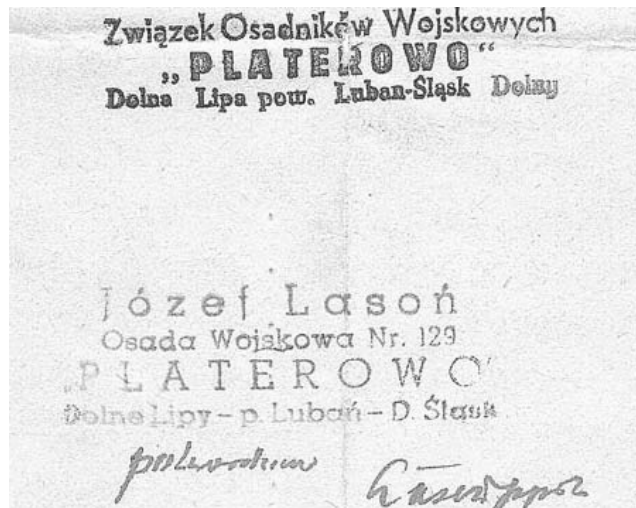 Związek Osadników Wojskowych
„PLATEROWO“
Dolna Lipa pow. Luban-Śląsk Dolny
Józef Lasoń
Osada Wojskowa Nr. 129
„PLATEROWO”
Dolne Lipy – p. Lubań – D. Śląsk